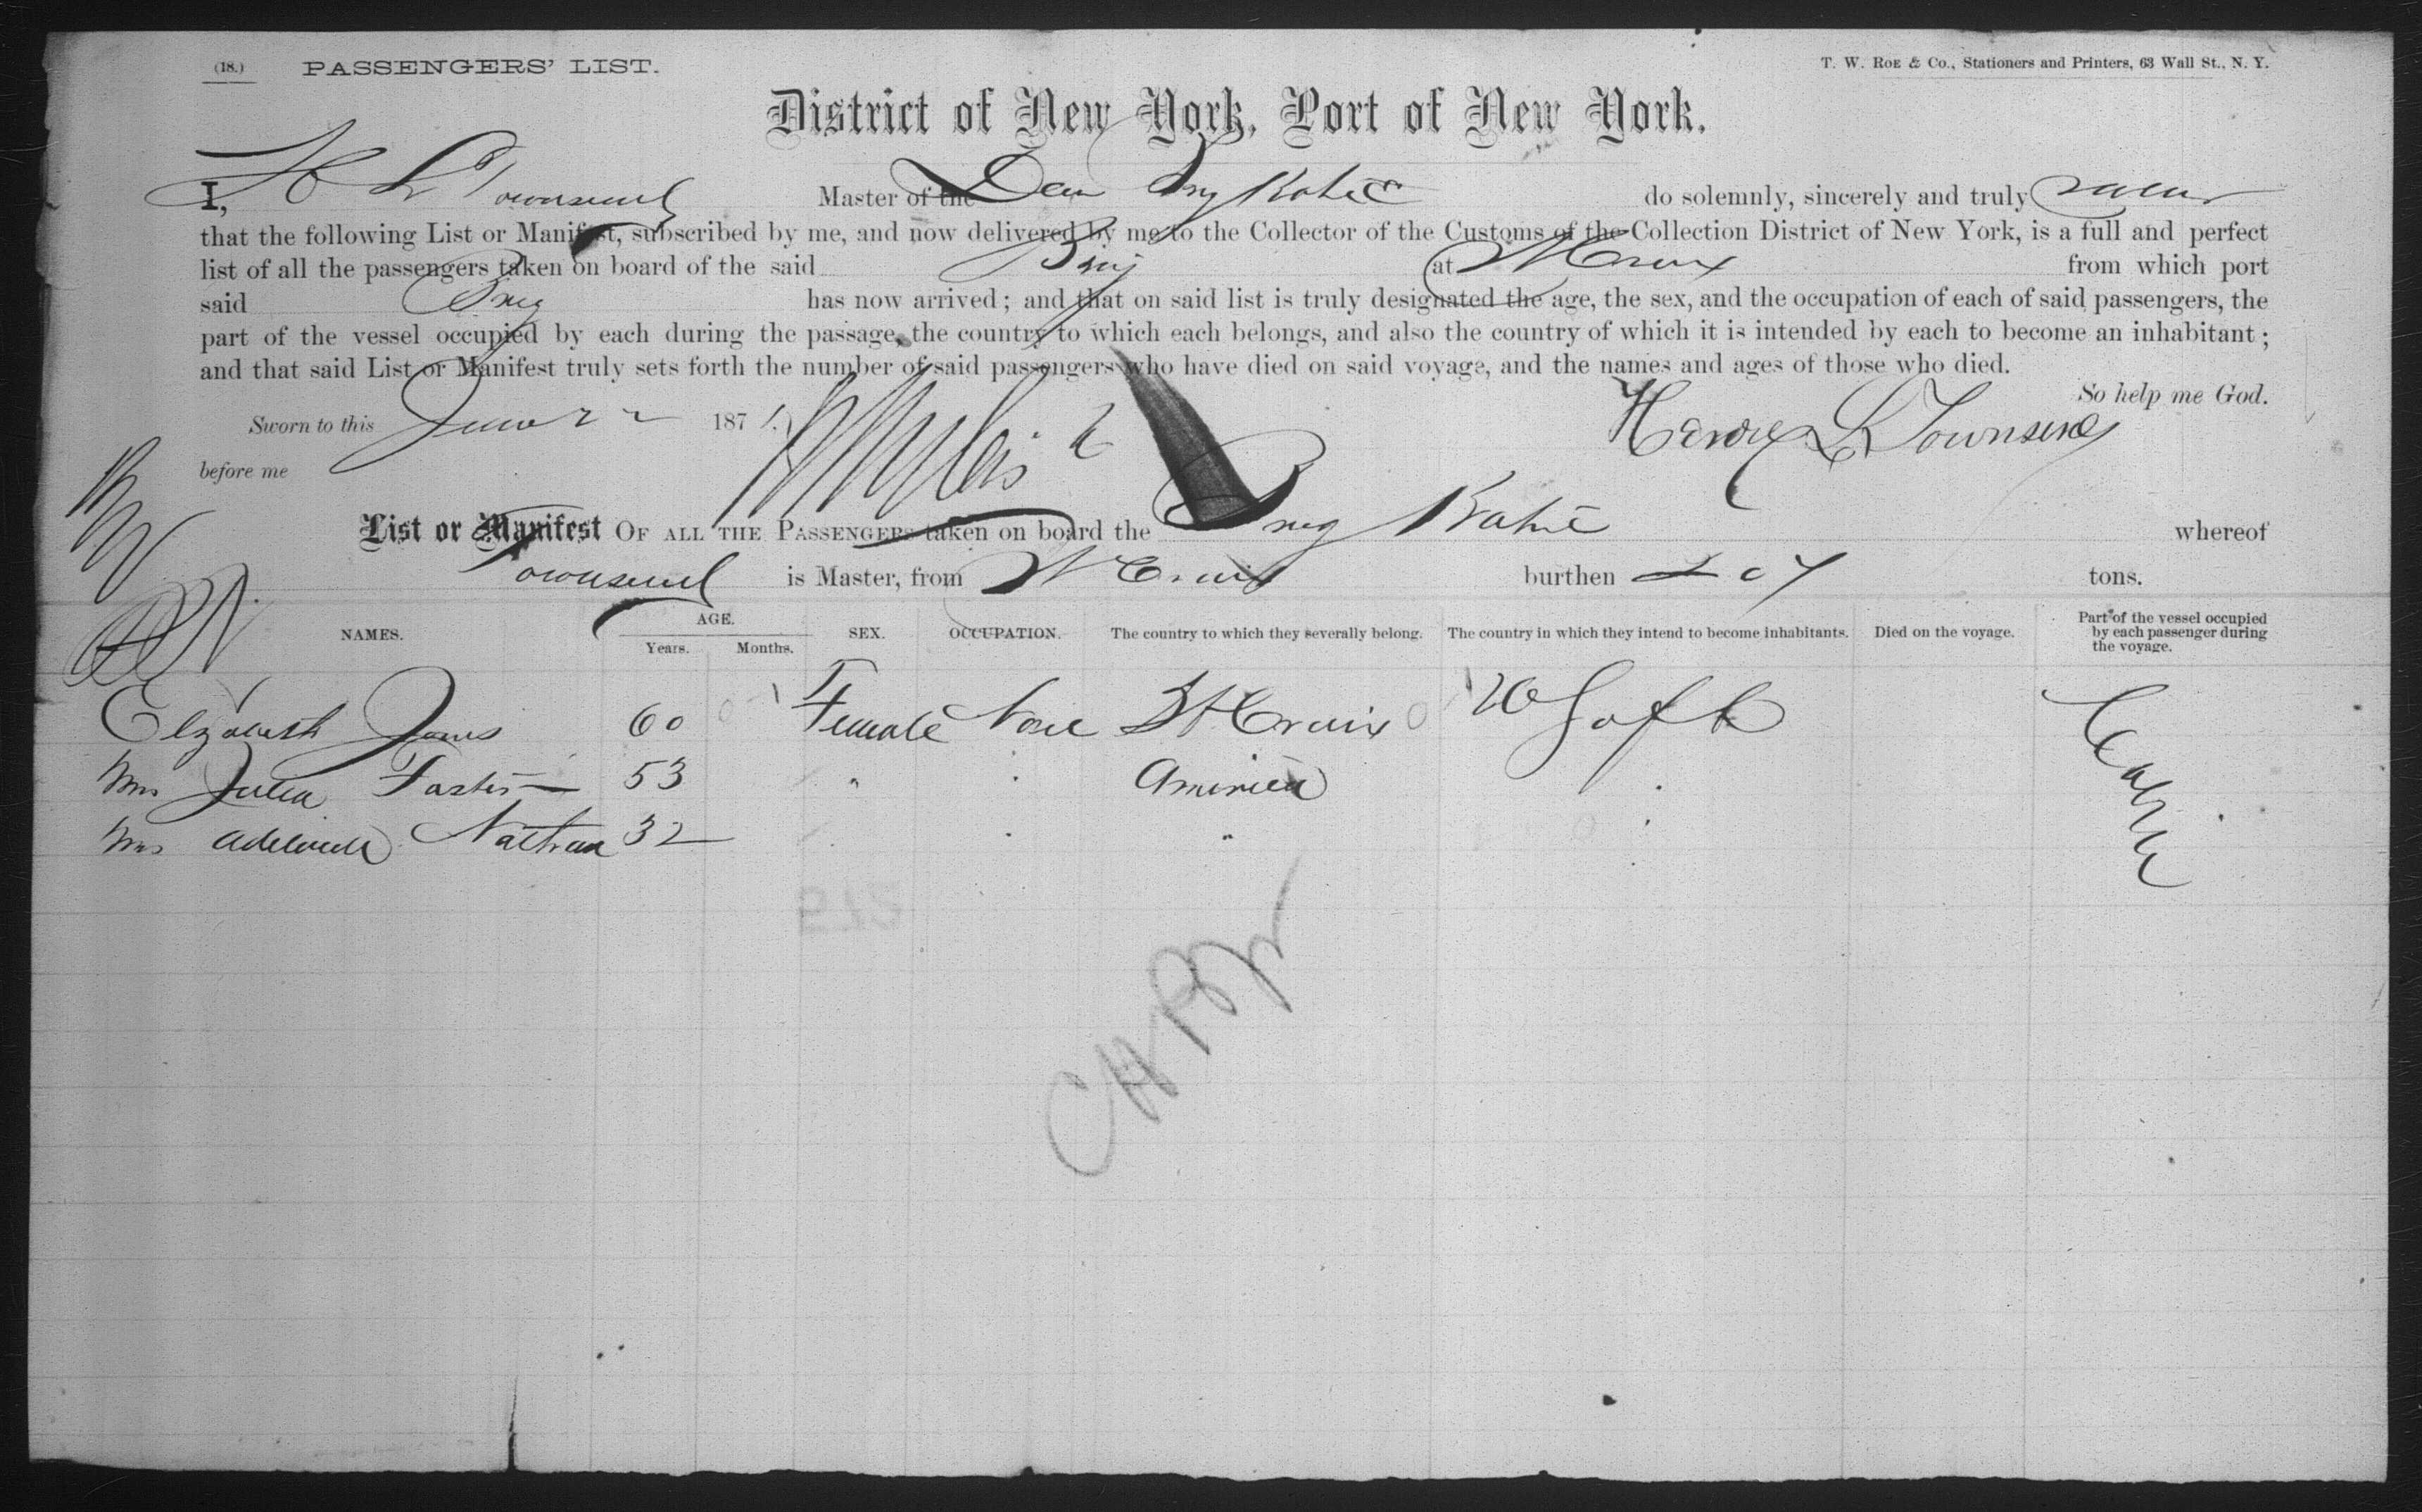 (18.) PASSENGERS' LIST.
T. W. ROE & Co., Stationers and Printers, 63 Wall St., N. Y.
District of New York, Port of New York.
I, H L Townsend Master of the Dan Brig Katie do solemnly, sincerely and truly swear
that the following List or Manifest, subscribed by me, and now delivered by me to the Collector of the Customs of the Collection District of New York, is a full and perfect
list of all the passengers taken on board of the said Brig at St Croix from which port
said Brig has now arrived; and that on said list is truly designated the age, the sex, and the occupation of each of said passengers, the
part of the vessel occupied by each during the passage, the country to which each belongs, and also the country of which it is intended by each to become an inhabitant;
and that said List or Manifest truly sets forth the number of said passengers who have died on said voyage, and the names and ages of those who died.
So help me God.
Sworn to this June 22 1871
Henry L Townsend
before me
List or Manifest OF ALL THE PASSENGERS taken on board the Brig Katie whereof
Townsend is Master, from St Croix burthen 207 tons.
NAMES. AGE. Years. Months. SEX. OCCUPATION. The country to which they severally belong. The country in which they intend to become inhabitants. Died on the voyage. Part of the vessel occupied by each passenger during the voyage.
Elizabeth James 60 Female None St Croix Cabin
Mrs Julia 53 " America
Mrs Nathan 32 "